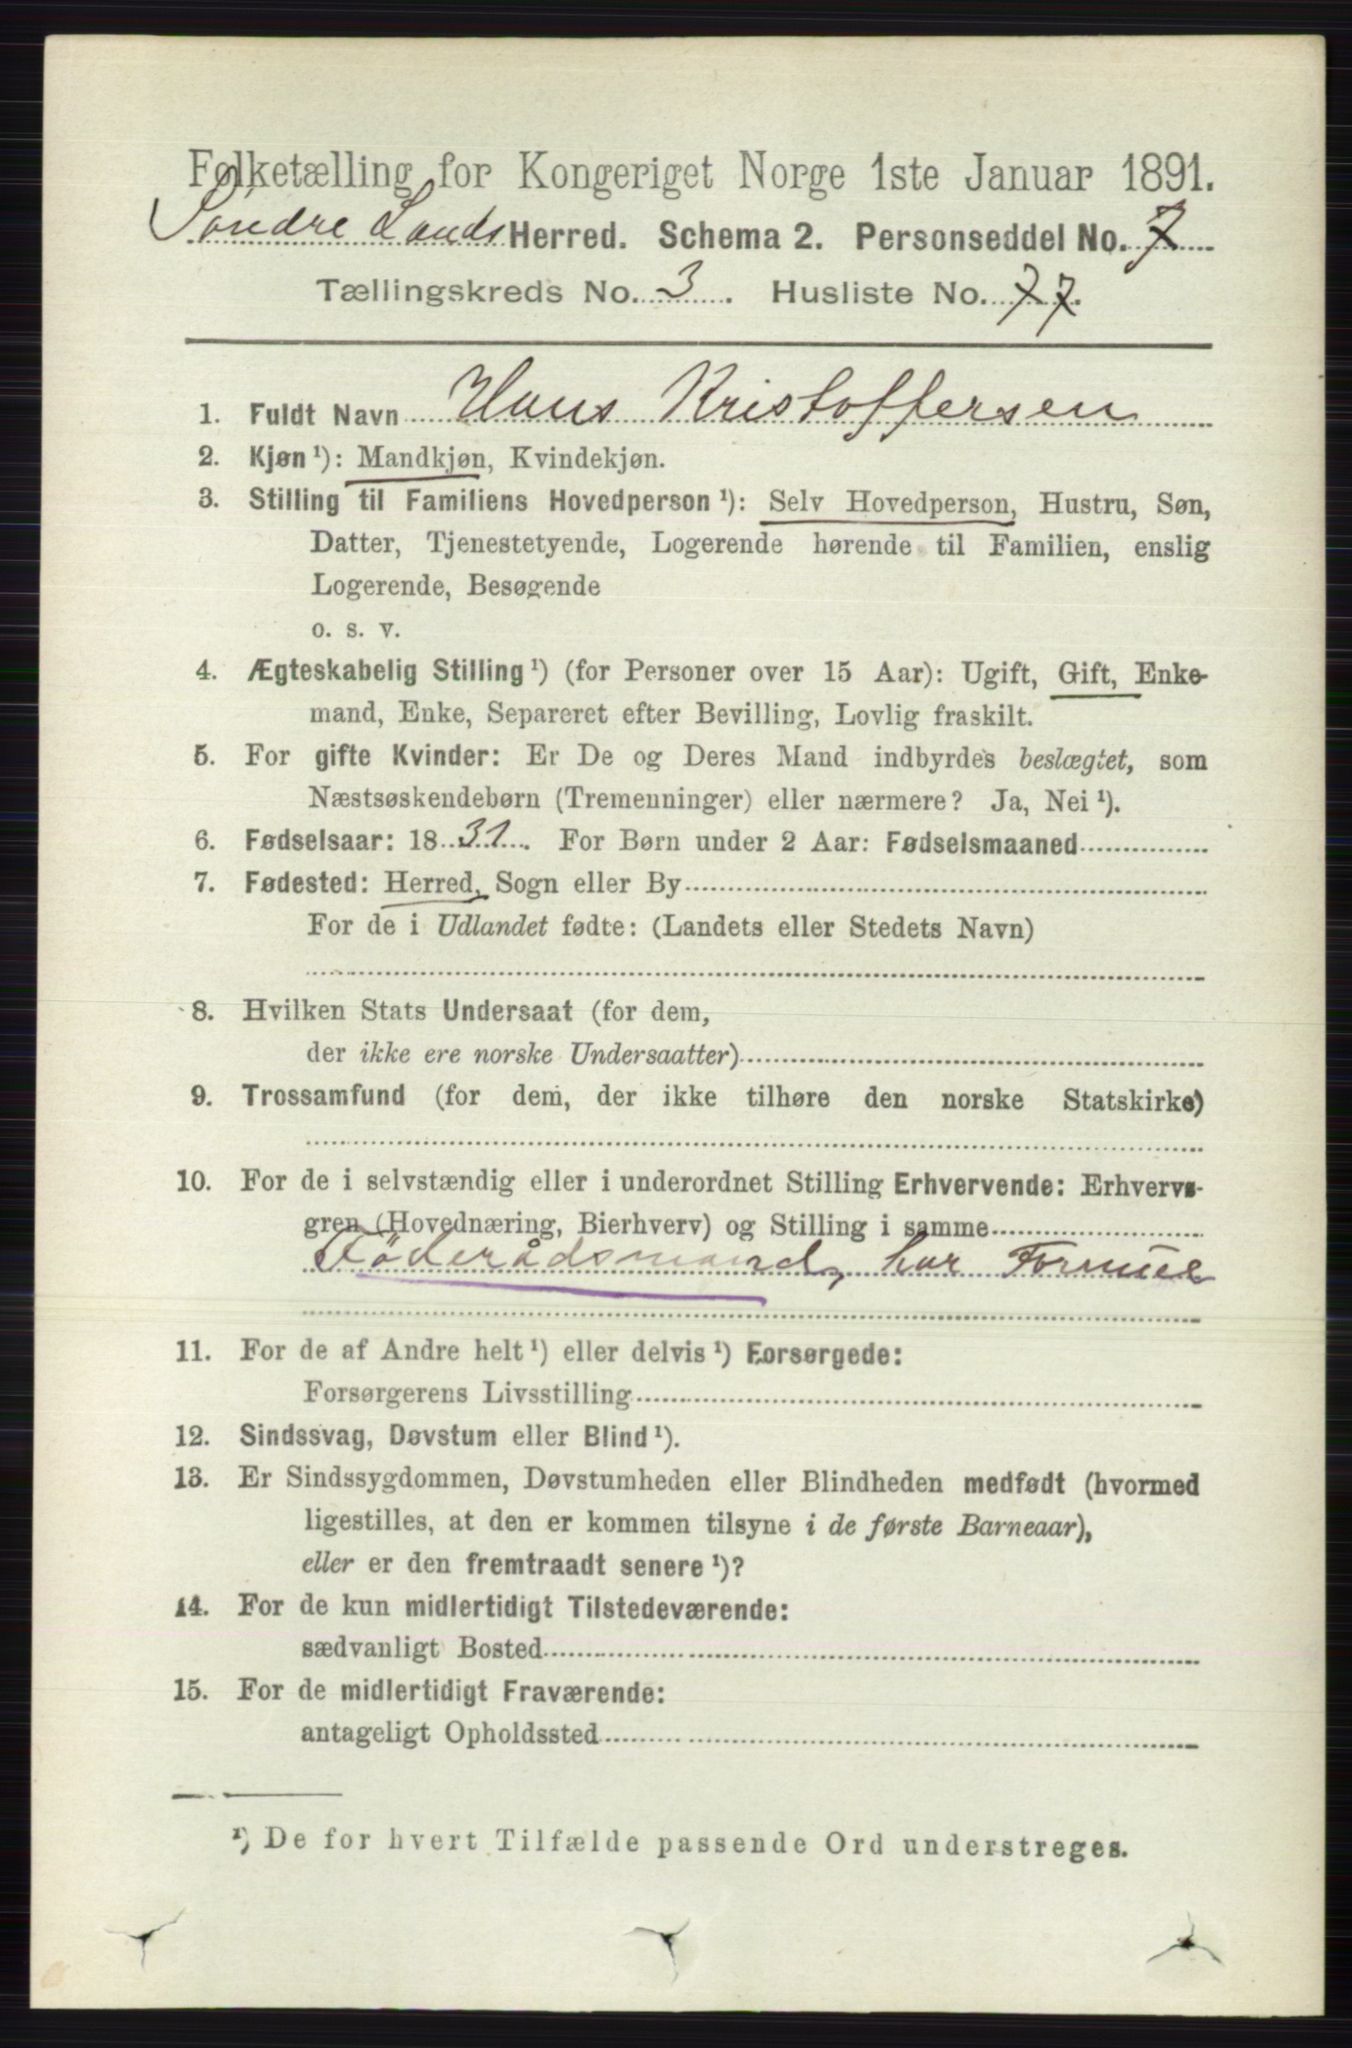 Folketælling for Kongeriget Norge 1ste Januar 1891.
Søndre Lands Herred. Schema 2. Personseddel No. 7
Tællingskreds No. 3. Husliste No. 77.
1. Fuldt Navn Hans Kristoffersen
2. Kjøn ¹): Mandkjøn, Kvindekjøn.
3. Stilling til Familiens Hovedperson ¹): Selv Hovedperson, Hustru, Søn,
Datter, Tjenestetyende, Logerende hørende til Familien, enslig
Logerende, Besøgende
o. s. v.
4. Ægteskabelig Stilling ¹) (for Personer over 15 Aar): Ugift, Gift, Enke-
mand, Enke, Separeret efter Bevilling, Lovlig fraskilt.
5. For gifte Kvinder: Er De og Deres Mand indbyrdes beslægtet, som
Næstsøskendebørn (Tremenninger) eller nærmere? Ja, Nei ¹).
6. Fødselsaar: 1831. For Børn under 2 Aar: Fødselsmaaned
7. Fødested: Herred, Sogn eller By
For de i Udlandet fødte: (Landets eller Stedets Navn)
8. Hvilken Stats Undersaat (for dem,
der ikke ere norske Undersaatter)
9. Trossamfund (for dem, der ikke tilhøre den norske Statskirke)
10. For de i selvstændig eller i underordnet Stilling Erhvervende: Erhvervs-
gren (Hovednæring, Bierhverv) og Stilling i samme
Föderådsmand, har Formue
11. For de af Andre helt ¹) eller delvis ¹) Forsørgede:
Forsørgerens Livsstilling
12. Sindssvag, Døvstum eller Blind ¹).
13. Er Sindssygdommen, Døvstumheden eller Blindheden medfødt (hvormed
ligestilles, at den er kommen tilsyne i de første Barneaar),
eller er den fremtraadt senere ¹)?
14. For de kun midlertidigt Tilstedeværende:
sædvanligt Bosted
15. For de midlertidigt Fraværende:
antageligt Opholdssted
¹) De for hvert Tilfælde passende Ord understreges.